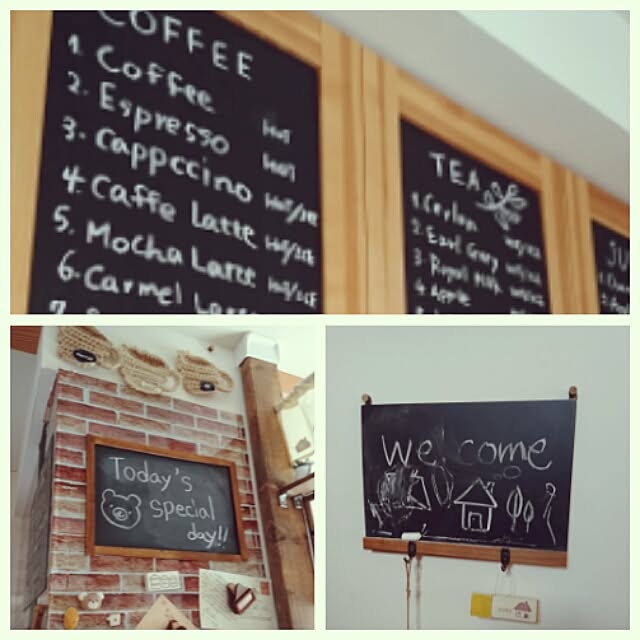 COFFEE
1. Coffee HOT
2. Espresso HOT
3. Cappccino HOT/ICE
4. Caffe Latte HOT/ICE
5. Mocha Latte HOT/ICE
6. Carmel
7.
TEA
1. Ceylon
2. Earl Gray
3. Royal Milk
4. Apple
JU
Today's
special
day!!
Welcome